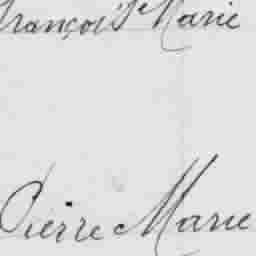 François Marie
Pierre Marie